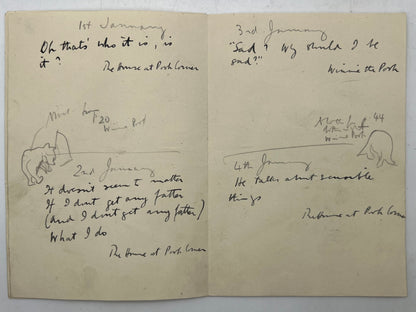 1st January
Oh that's who it is, is
it?
The House at Pooh Corner
from
P20
Winnie Pooh
2nd January
It doesn't seem t matter
If I dont get any fatter
(And I dont get any fatter)
What I do
The House at Pooh Corner
3rd January
"Sad? Why should I be
sad?"
Winnie the Pooh
44
Winnie Pooh
4th January
He talks about sensible
things
The House at Pooh Corner